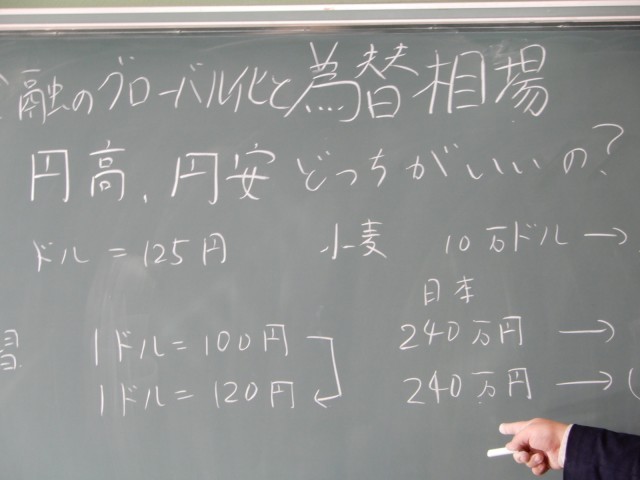 融のグローバル化と為替相場
円高、円安どっちがいいの?
ドル=125円 小麦 10万ドル→
日本
習 1ドル=100円 240万円→
1ドル=120円 240万円→(